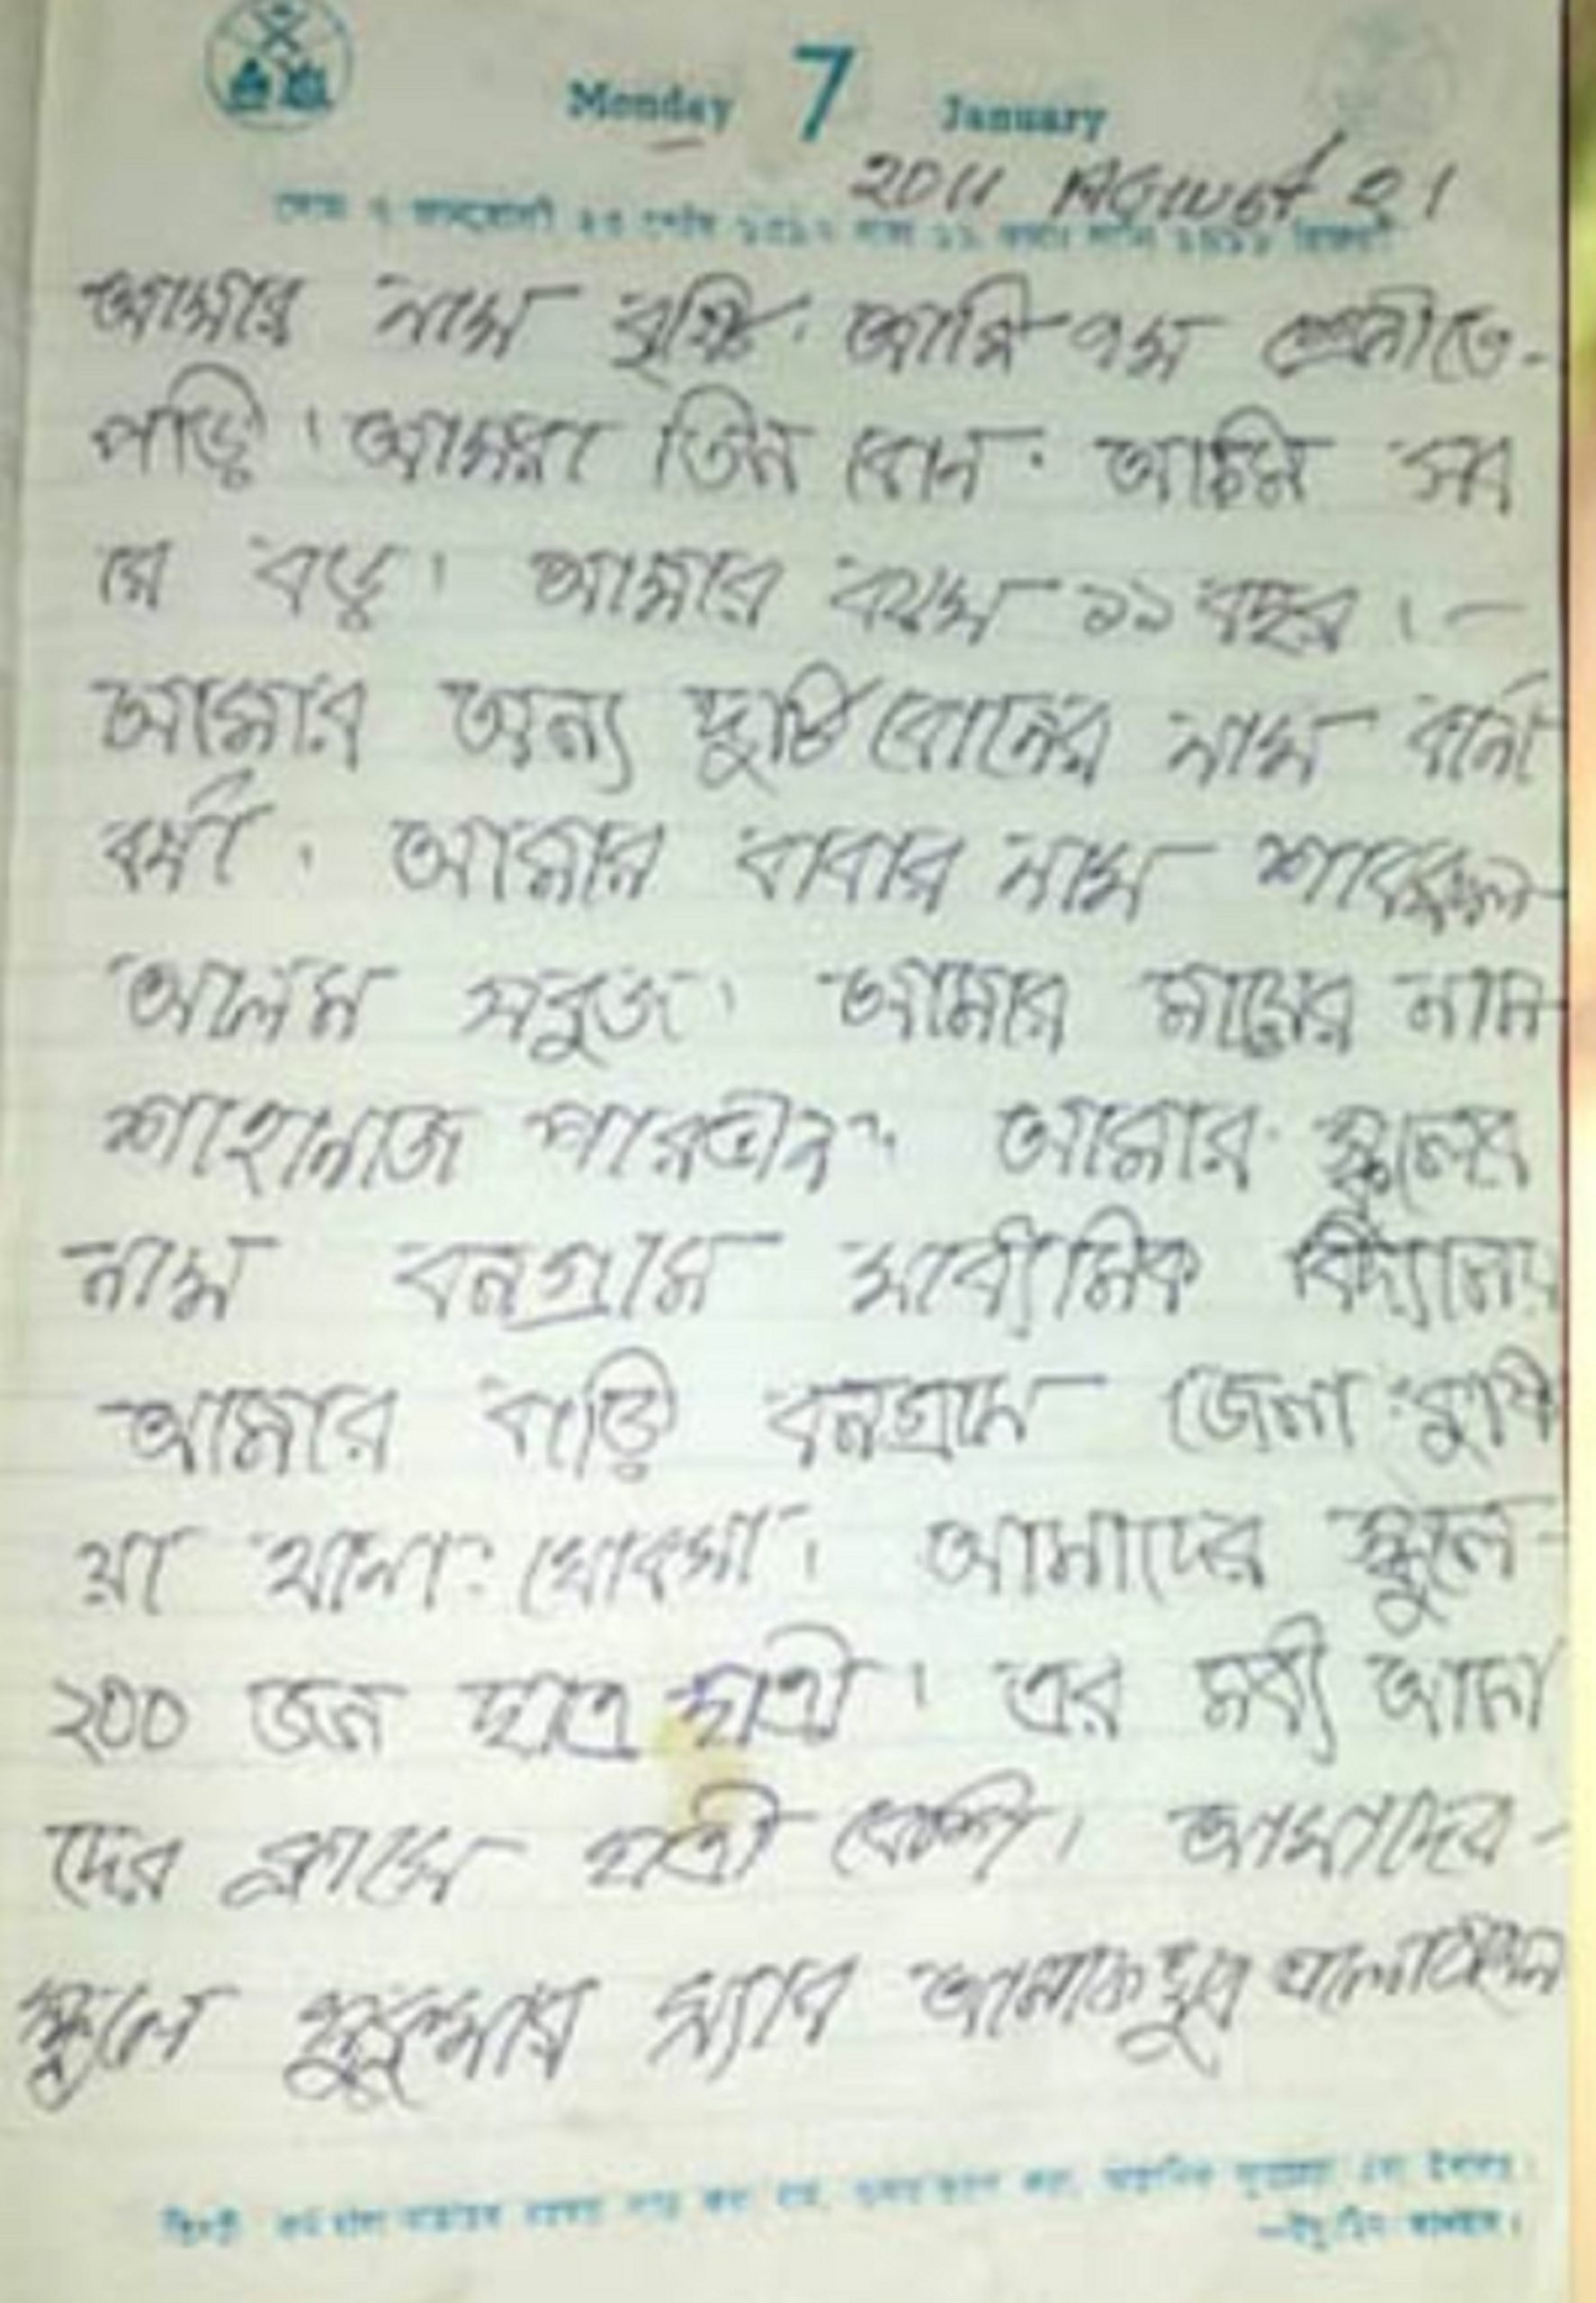 Monday 7 January
2011 August 21
আমার নাম বৃষ্টি। আমি ৭ম শ্রেনীতে-
পড়ি। আমরা তিন বোন। আমি সব
রে বড়। আমার বয়স ১১ বছর।-
আমার অন্য দুটি বোনের নাম বর্না
বর্সা। আমার বাবার নাম
আলম সবুজ। আমার মায়ের নাম
শাহানাজ পারভীন। আমার স্কুলের
নাম বনগ্রাম মাধ্যমিক বিদ্যালয়
আমার বাড়ি বনগ্রাম জেলা:
য়া থানা: খোকসা। আমাদের স্কুলে
২০০ জন ছাত্র ছাত্রী। এর মধ্যে আমা
দের ক্লাসে ছাত্রী বেশি। আমাদের-
স্কুলে সুকুমার স্যার আমাকে খুব